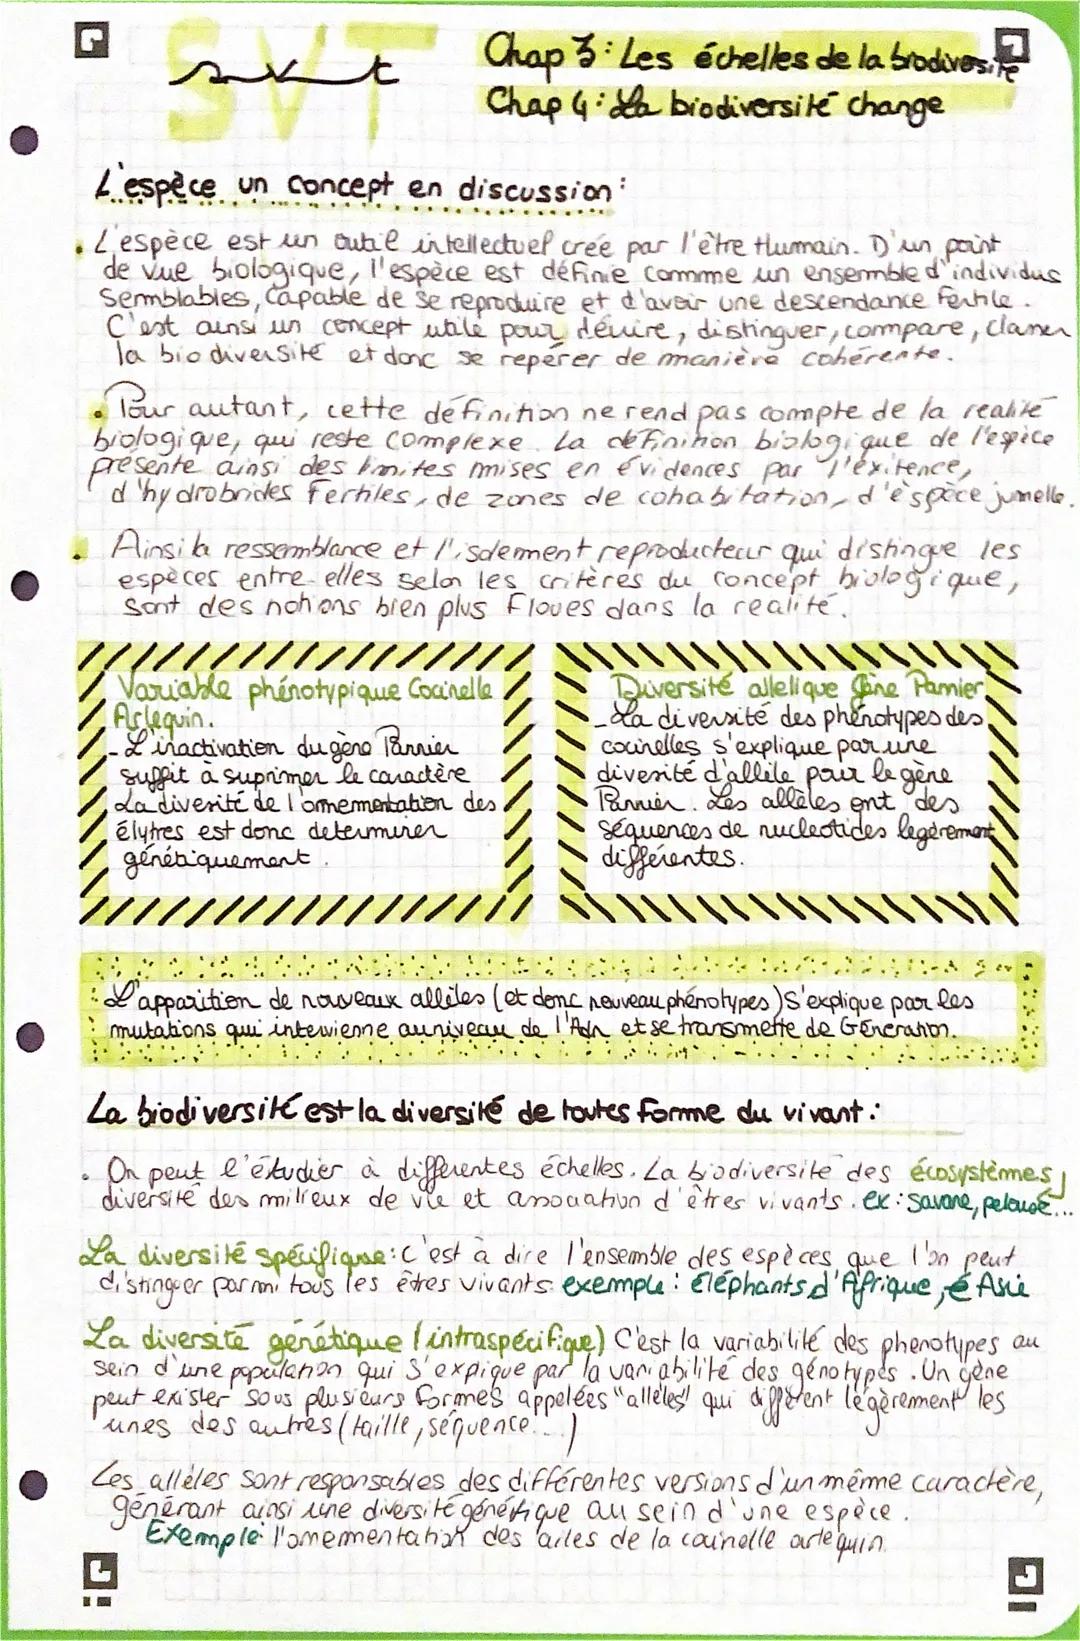 SVT
svt
Chap 3 : Les échelles de la biodiversité
Chap 4 : La biodiversité change
L'espèce un concept en discussion :
L'espèce est un outil intellectuel créé par l'être Humain. D'un point
de vue biologique, l'espèce est définie comme un ensemble d'individus
semblables, capable de se reproduire et d'avoir une descendance fertile.
C'est ainsi un concept utile pour décrire, distinguer, compare, classer
la biodiversité et donc se repérer de manière cohérente.
Pour autant, cette définition ne rend pas compte de la realité
biologique, qui reste complexe. La définition biologique de l'espèce
présente ainsi des limites mises en évidences par l'éxitence,
d'hydrobrides Fertiles, de zones de cohabitation, d'èspèce jumelle.
Ainsi la ressemblance et l'isolement reproducteur qui distingue les
espèces entre elles selon les critères du concept biologique,
sont des notions bien plus Floues dans la realité.
Variable phénotypique Cocinelle
Arlequin.
- L'inactivation du gène Pannier
suffit à suprimer le caractère
La diverité de l'ornementation des
élytres est donc determiner
génétiquement.
Diversité allelique Gène Pannier
- La diversité des phénotypes des
coccinelles s'explique par une
diversité d'allèle pour le gène
Pannier. Les allèles ont des
séquences de nucleotides legèrement
différentes.
L'apparition de nouveaux allèles (et donc nouveau phénotypes) s'explique par les
mutations qui intervienne au niveau de l'Adn et se transmette de Géneration.
La biodiversité est la diversité de toutes Forme du vivant :
On peut l'étudier à différentes échelles. La biodiversité des écosystèmes,
diversité des milieux de vie et association d'êtres vivants. ex : Savane, pelouse...
La diversité spécifique : c'est à dire l'ensemble des espèces que l'on peut
distinger parmi tous les êtres vivants. exemple : éléphants d'Afrique, é Asie
La diversité génétique (intraspécifique) C'est la variabilité des phenotypes au
sein d'une population qui s'expique par la variabilité des génotypes. Un gène
peut exister sous plusieurs formes appelées "allèles" qui diffèrent légèrement les
unes des autres (taille, séquence...)
Les allèles sont responsables des différentes versions d'un même caractère,
générant ainsi une diversité génétique au sein d'une espèce.
Exemple : l'ornementation des ailes de la coccinelle arlequin.